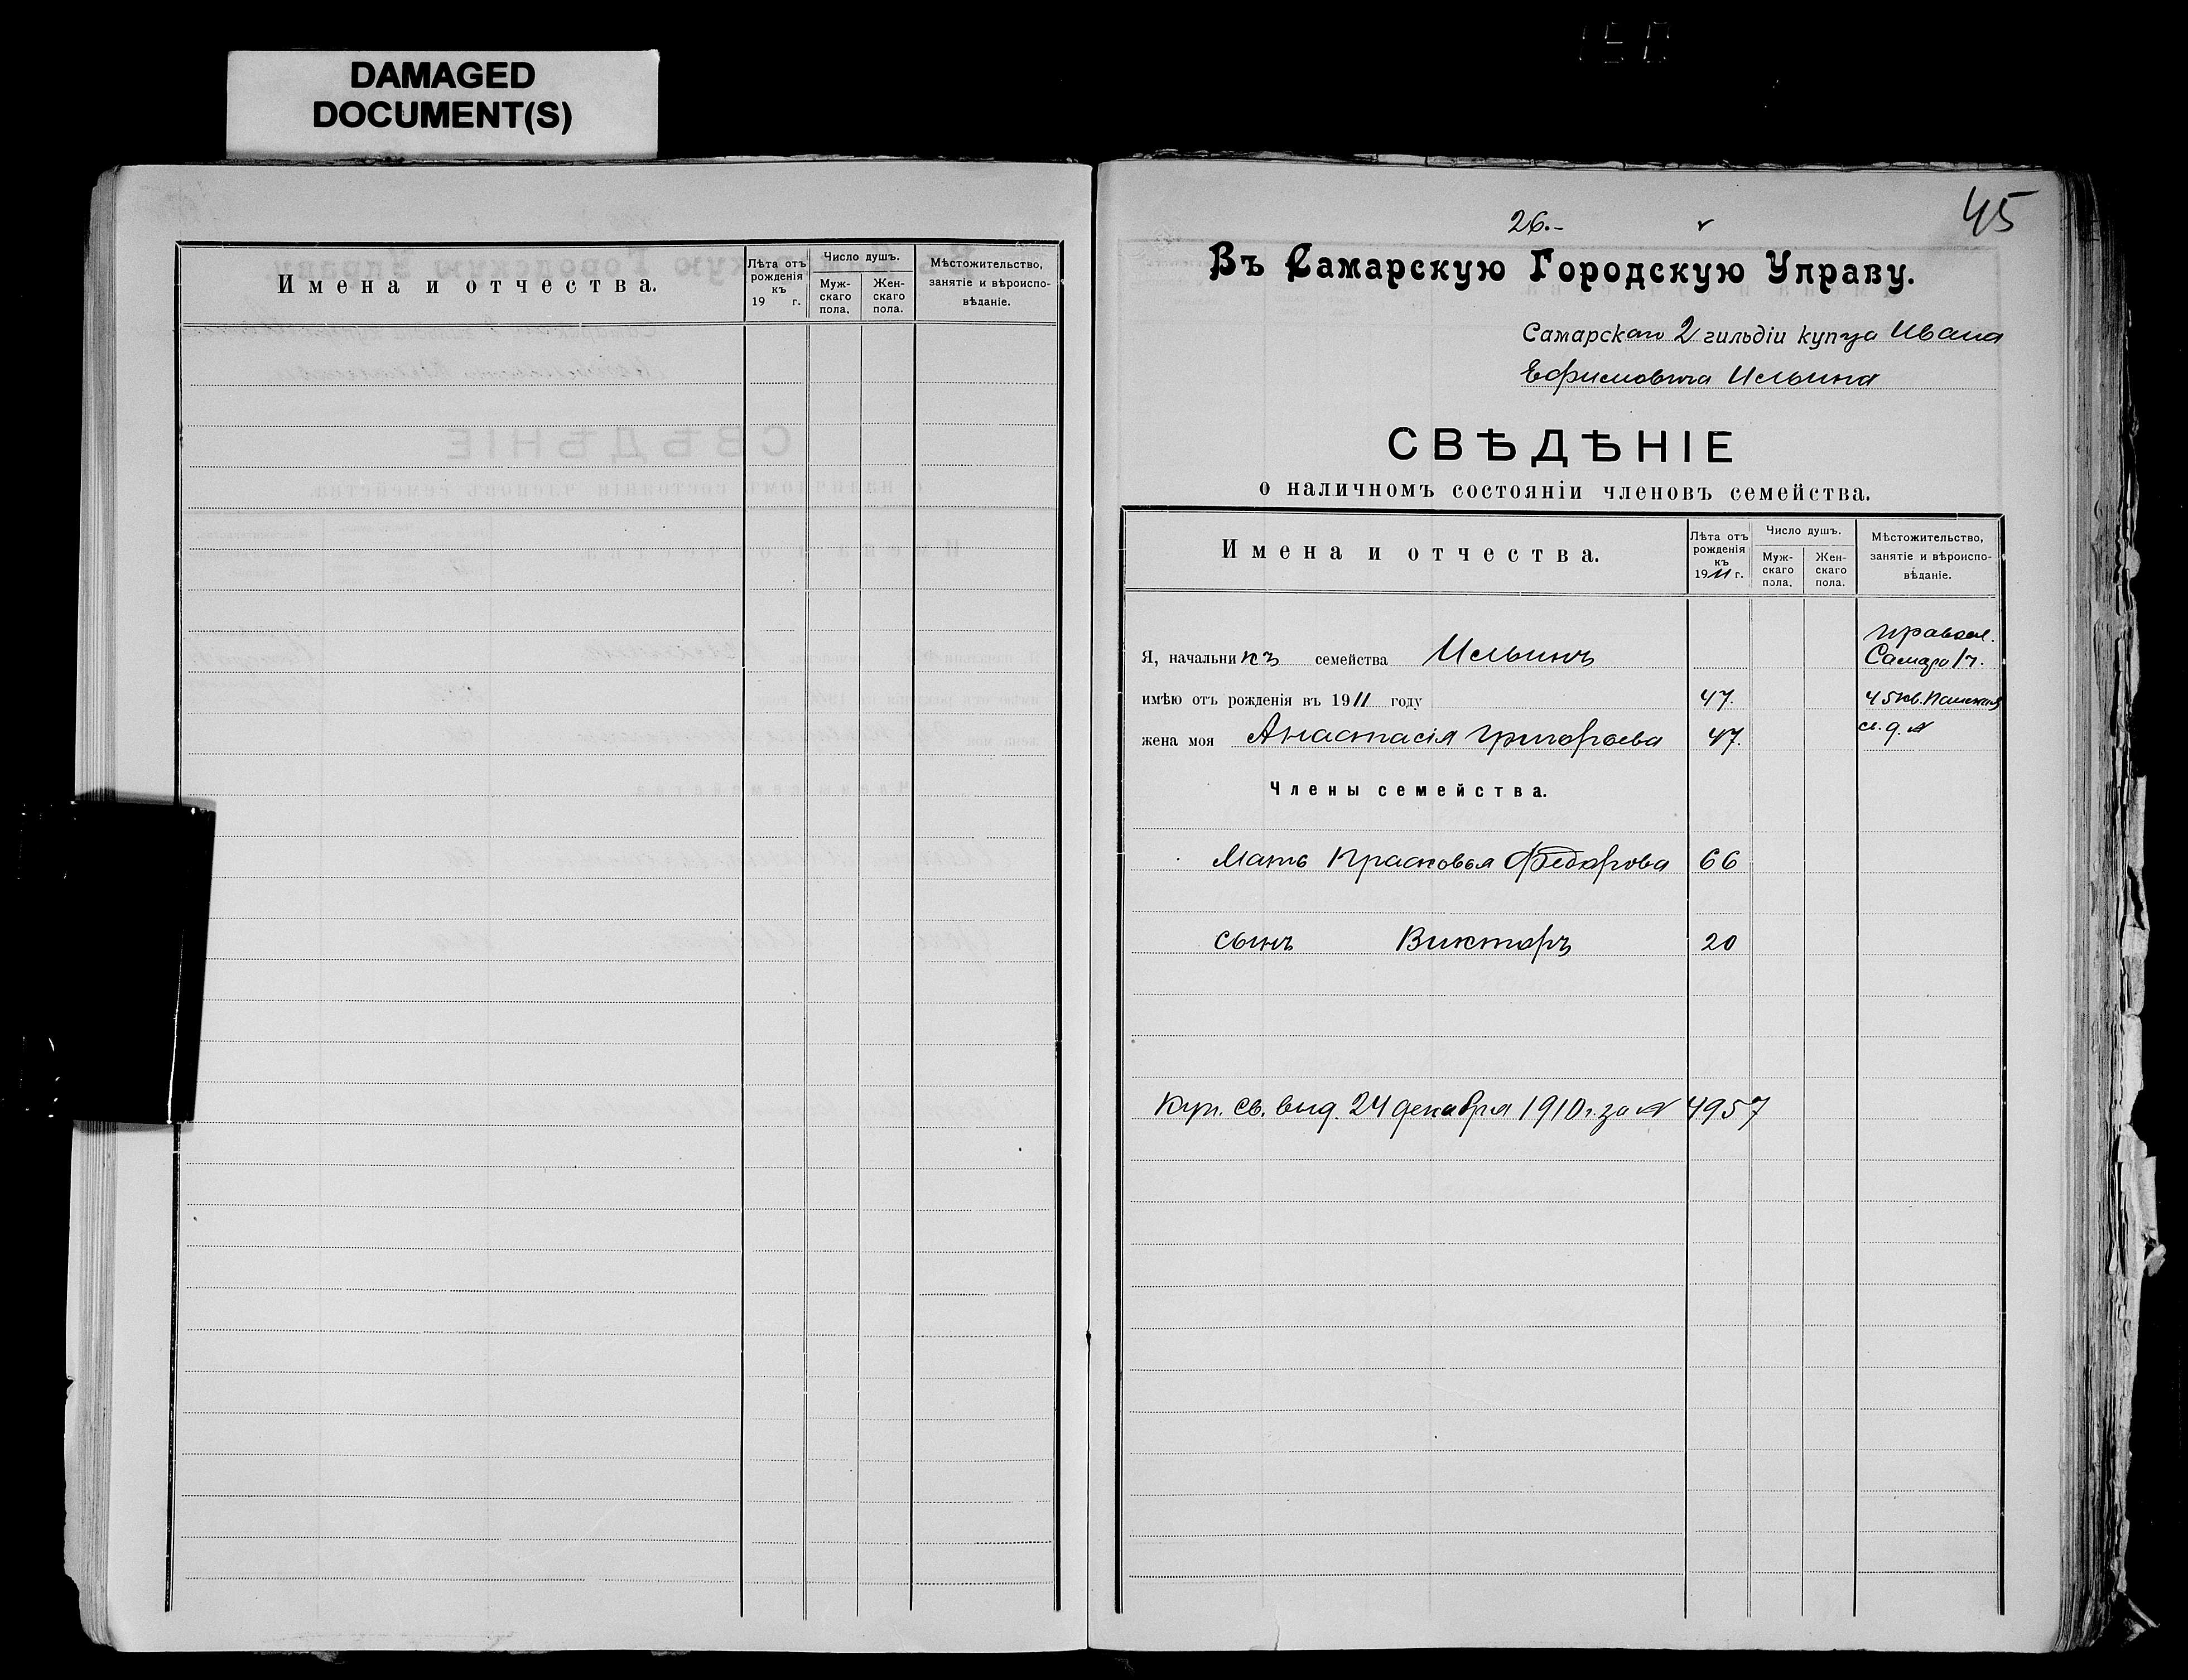 DAMAGED
DOCUMENT(S)
Имена и отчества.
Лѣта отъ рожденія къ 19 г.
Число душъ.
Муж-скаго пола.
Жен-скаго пола.
Мѣстожительство, занятіе и вѣроиспо-вѣданіе.
45
26.-
Въ Самарскую Городскую Управу.
Самарскаго 2 гильдіи купца Ивана
Ефимовича Ильина
СВѢДѢНІЕ
о наличномъ состояніи членовъ семейства.
Имена и отчества.
Лѣта отъ рожденія къ 1911 г.
Число душъ.
Муж-скаго пола.
Жен-скаго пола.
Мѣстожительство, занятіе и вѣроиспо-вѣданіе.
Правосл.
Я, начальникъ семейства Ильинъ Самара 1 ч.
имѣю отъ рожденія въ 1911 году 47. 45 кв. Панская
жена моя Анастасія Григорьева 47. св. д. №
Члены семейства.
Мать Прасковья Федорова 66
сынъ Викторъ 20
Куп. св. выд. 24 декабря 1910 г. за № 4957